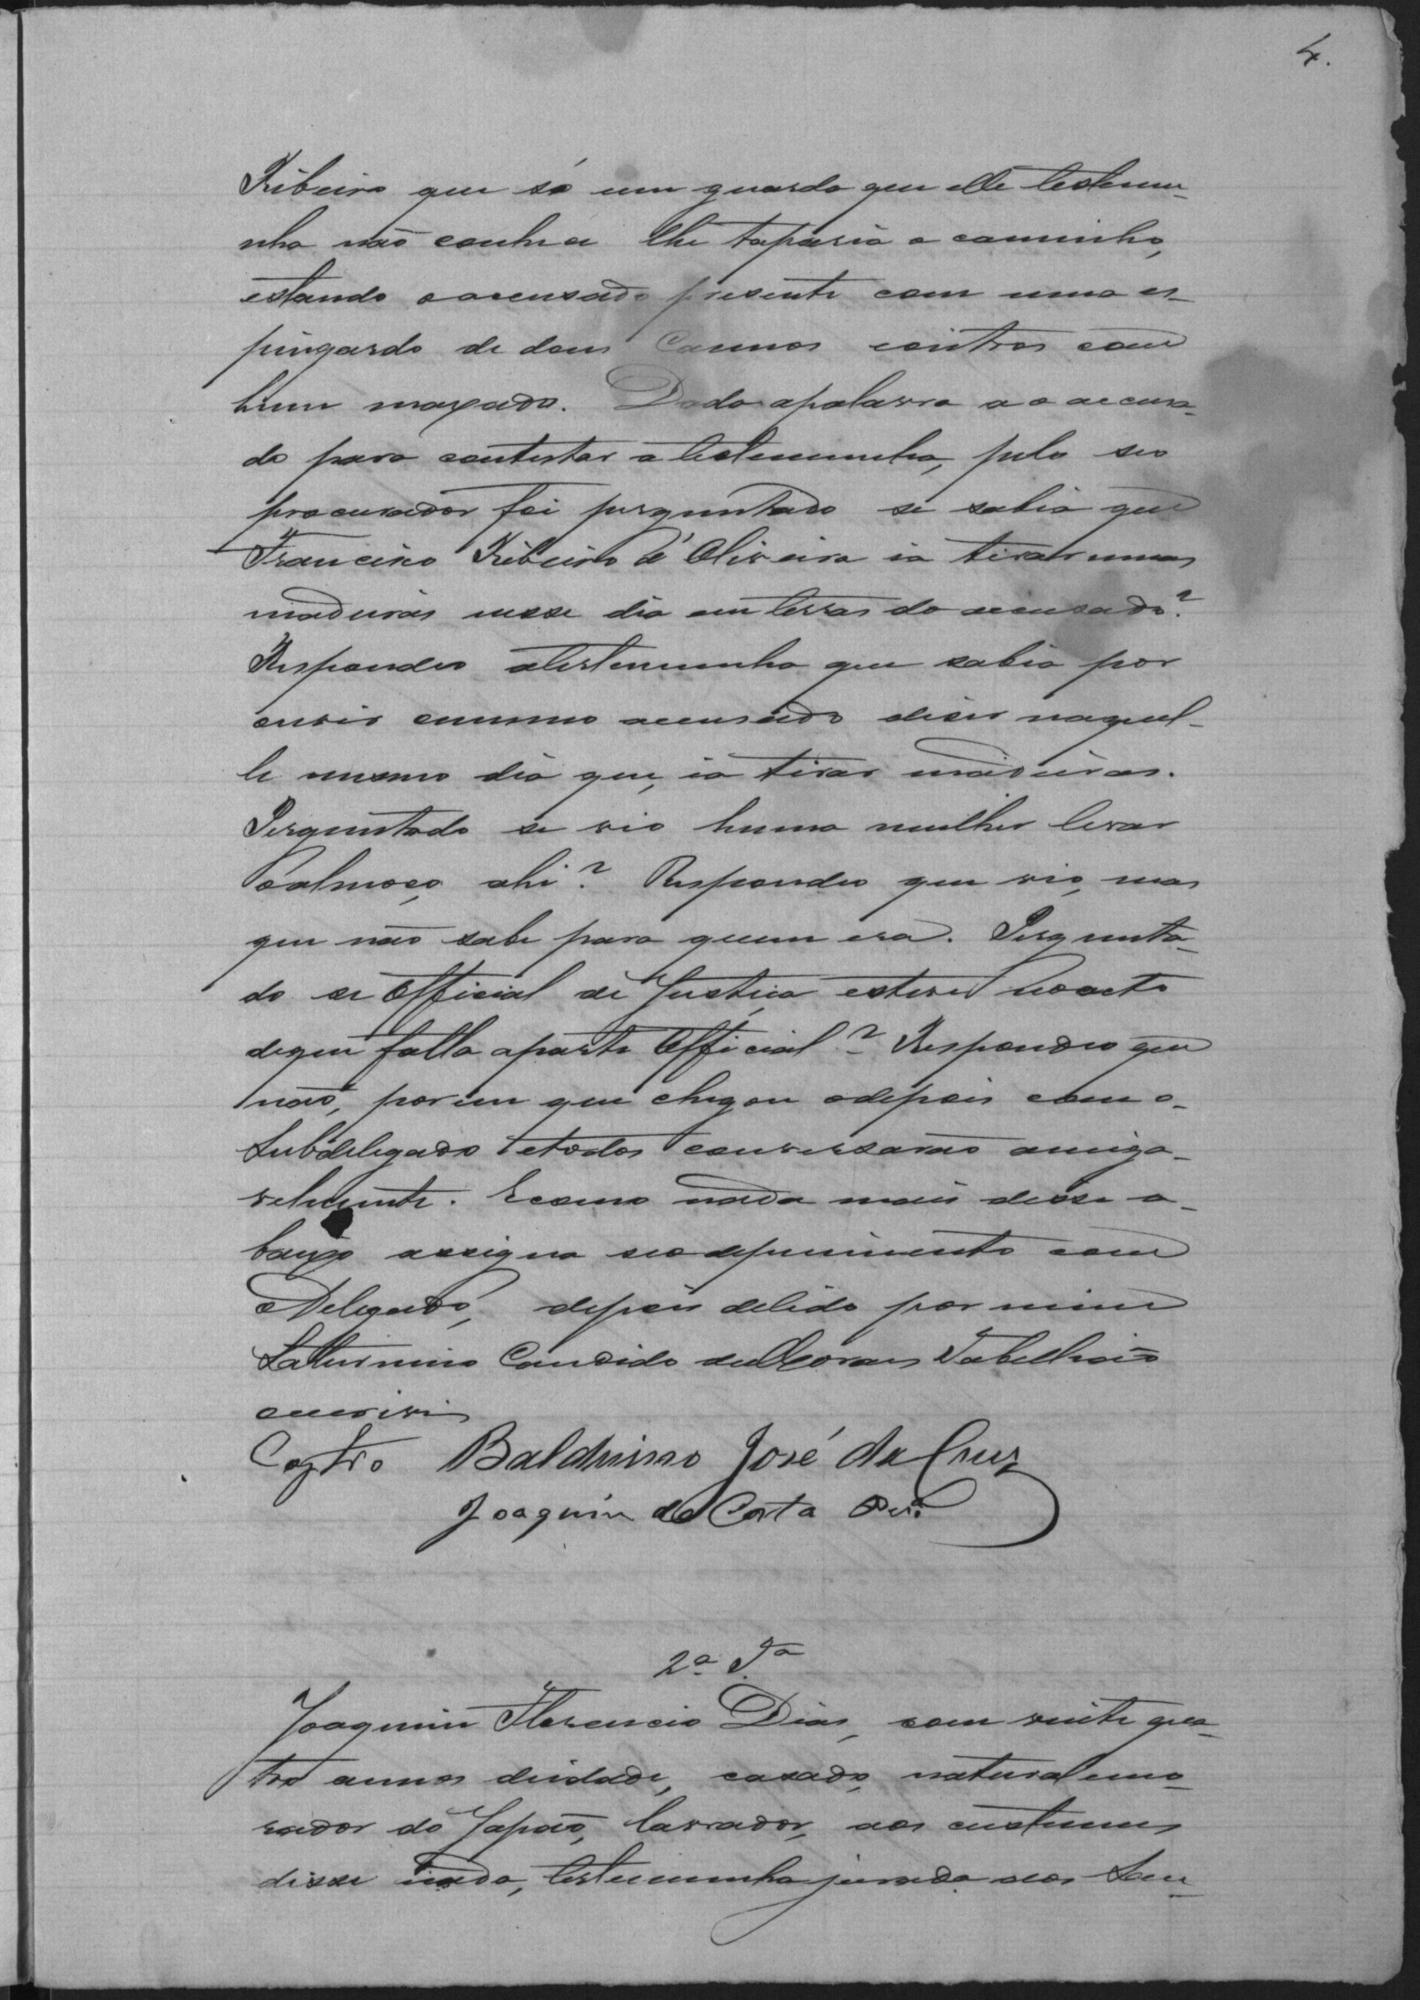 4.
Ribeiro que só um guarda que elle testemu-
nha não conhece lhe taparia o caminho,
estando o accusado presente com uma es-
pingarda de dous cannos e outros com
hum maxado. Dada apalavra a o accusa-
do para contestar a testemunha, pelo seo
procurador foi perguntado se sabia que
Francisco Ribeiro d' Oliveira ia tirar umas
madeiras nesse dia em terras do accusado?
Respondeo atestemunha que sabia por
ouvir omesmo accusado diser naquel-
le mesmo dia que, ia tirar madeiras.
Perguntado se vio huma mulher levar
oalmoço, ahi? Respondeo que vio, mas
que não sabe para quem era. Pergunta-
do se Official de Justiça esteve no acto
deque falla aparte Official? Respondeo que
não, porem que chegou adepois com o-
Subdelegado e todos conversarão amiga-
velmente. E como nada mais disse a-
baixo assigna seo depuimento com
o Delegado, depois de lido por mim
Saturnino Candido de Moraes Tabellião
oescrivi
Castro Balduino José da Cruz
Joaquim da Costa Per.ª
2ª Tª
Joaquim Florencio Dias, com vinte qua-
tro annos deidade, casado, natural emo-
rador do Japão, lavrador, aos custumes
disse nada, testemunha jurada aos San-